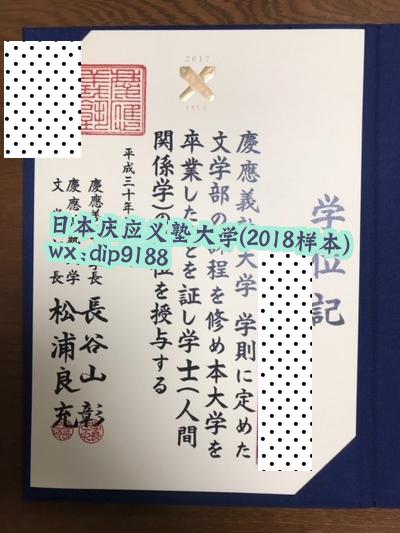 2017
学位記
慶應義塾大学 学則に定めた
文学部の課程を修め本大学を
卒業したことを証し学士(人間
関係学)の学位を授与する
平成三十年
慶應義塾長 長谷山 彰
慶應義塾大学
文学部長 松浦良充
日本庆应义塾大学(2018样本)
wx:dip9188